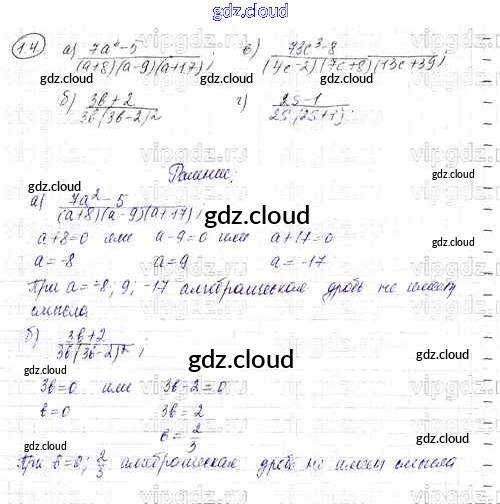 gdz.cloud
1.4. а) 7a² - 5 / (a+8)(a-9)(a+17) ; в) 73c³-8 / (4c-2)(7c+8)(13c+39) ;
б) 3b + 2 / 3b(3b-2)² г) 2s-1 / 2s(2s+1) ;
gdz.cloud
Решение:
gdz.cloud
а) 7a² - 5 / (a+8)(a-9)(a+17) ;
gdz.cloud
a+8=0 или a-9=0 или a+17=0
a=-8 a=9 a=-17
gdz.cloud
При a=-8; 9; -17 алгебраическая дробь не имеет
смысла
б) 3b+2 / 3b(3b-2)² ;
gdz.cloud
3b=0 или 3b-2=0
b=0 3b=2
b=2/3
gdz.cloud
При b=0; 2/3 алгебраическая дробь не имеет смысла